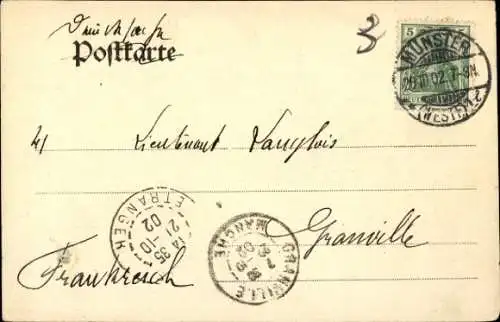 Drucksache
Postkarte
3
5
MÜNSTER
20.10.02. 7-8N.
(WESTF.) 1.
Lieutenant Langlois
ETRANGER
14 35
21 -10
02
GRANVILLE
MANCHE
Granville
Frankreich